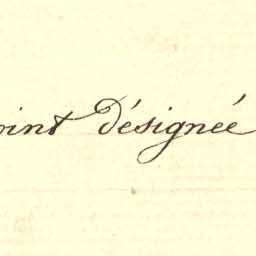 oint Désignée